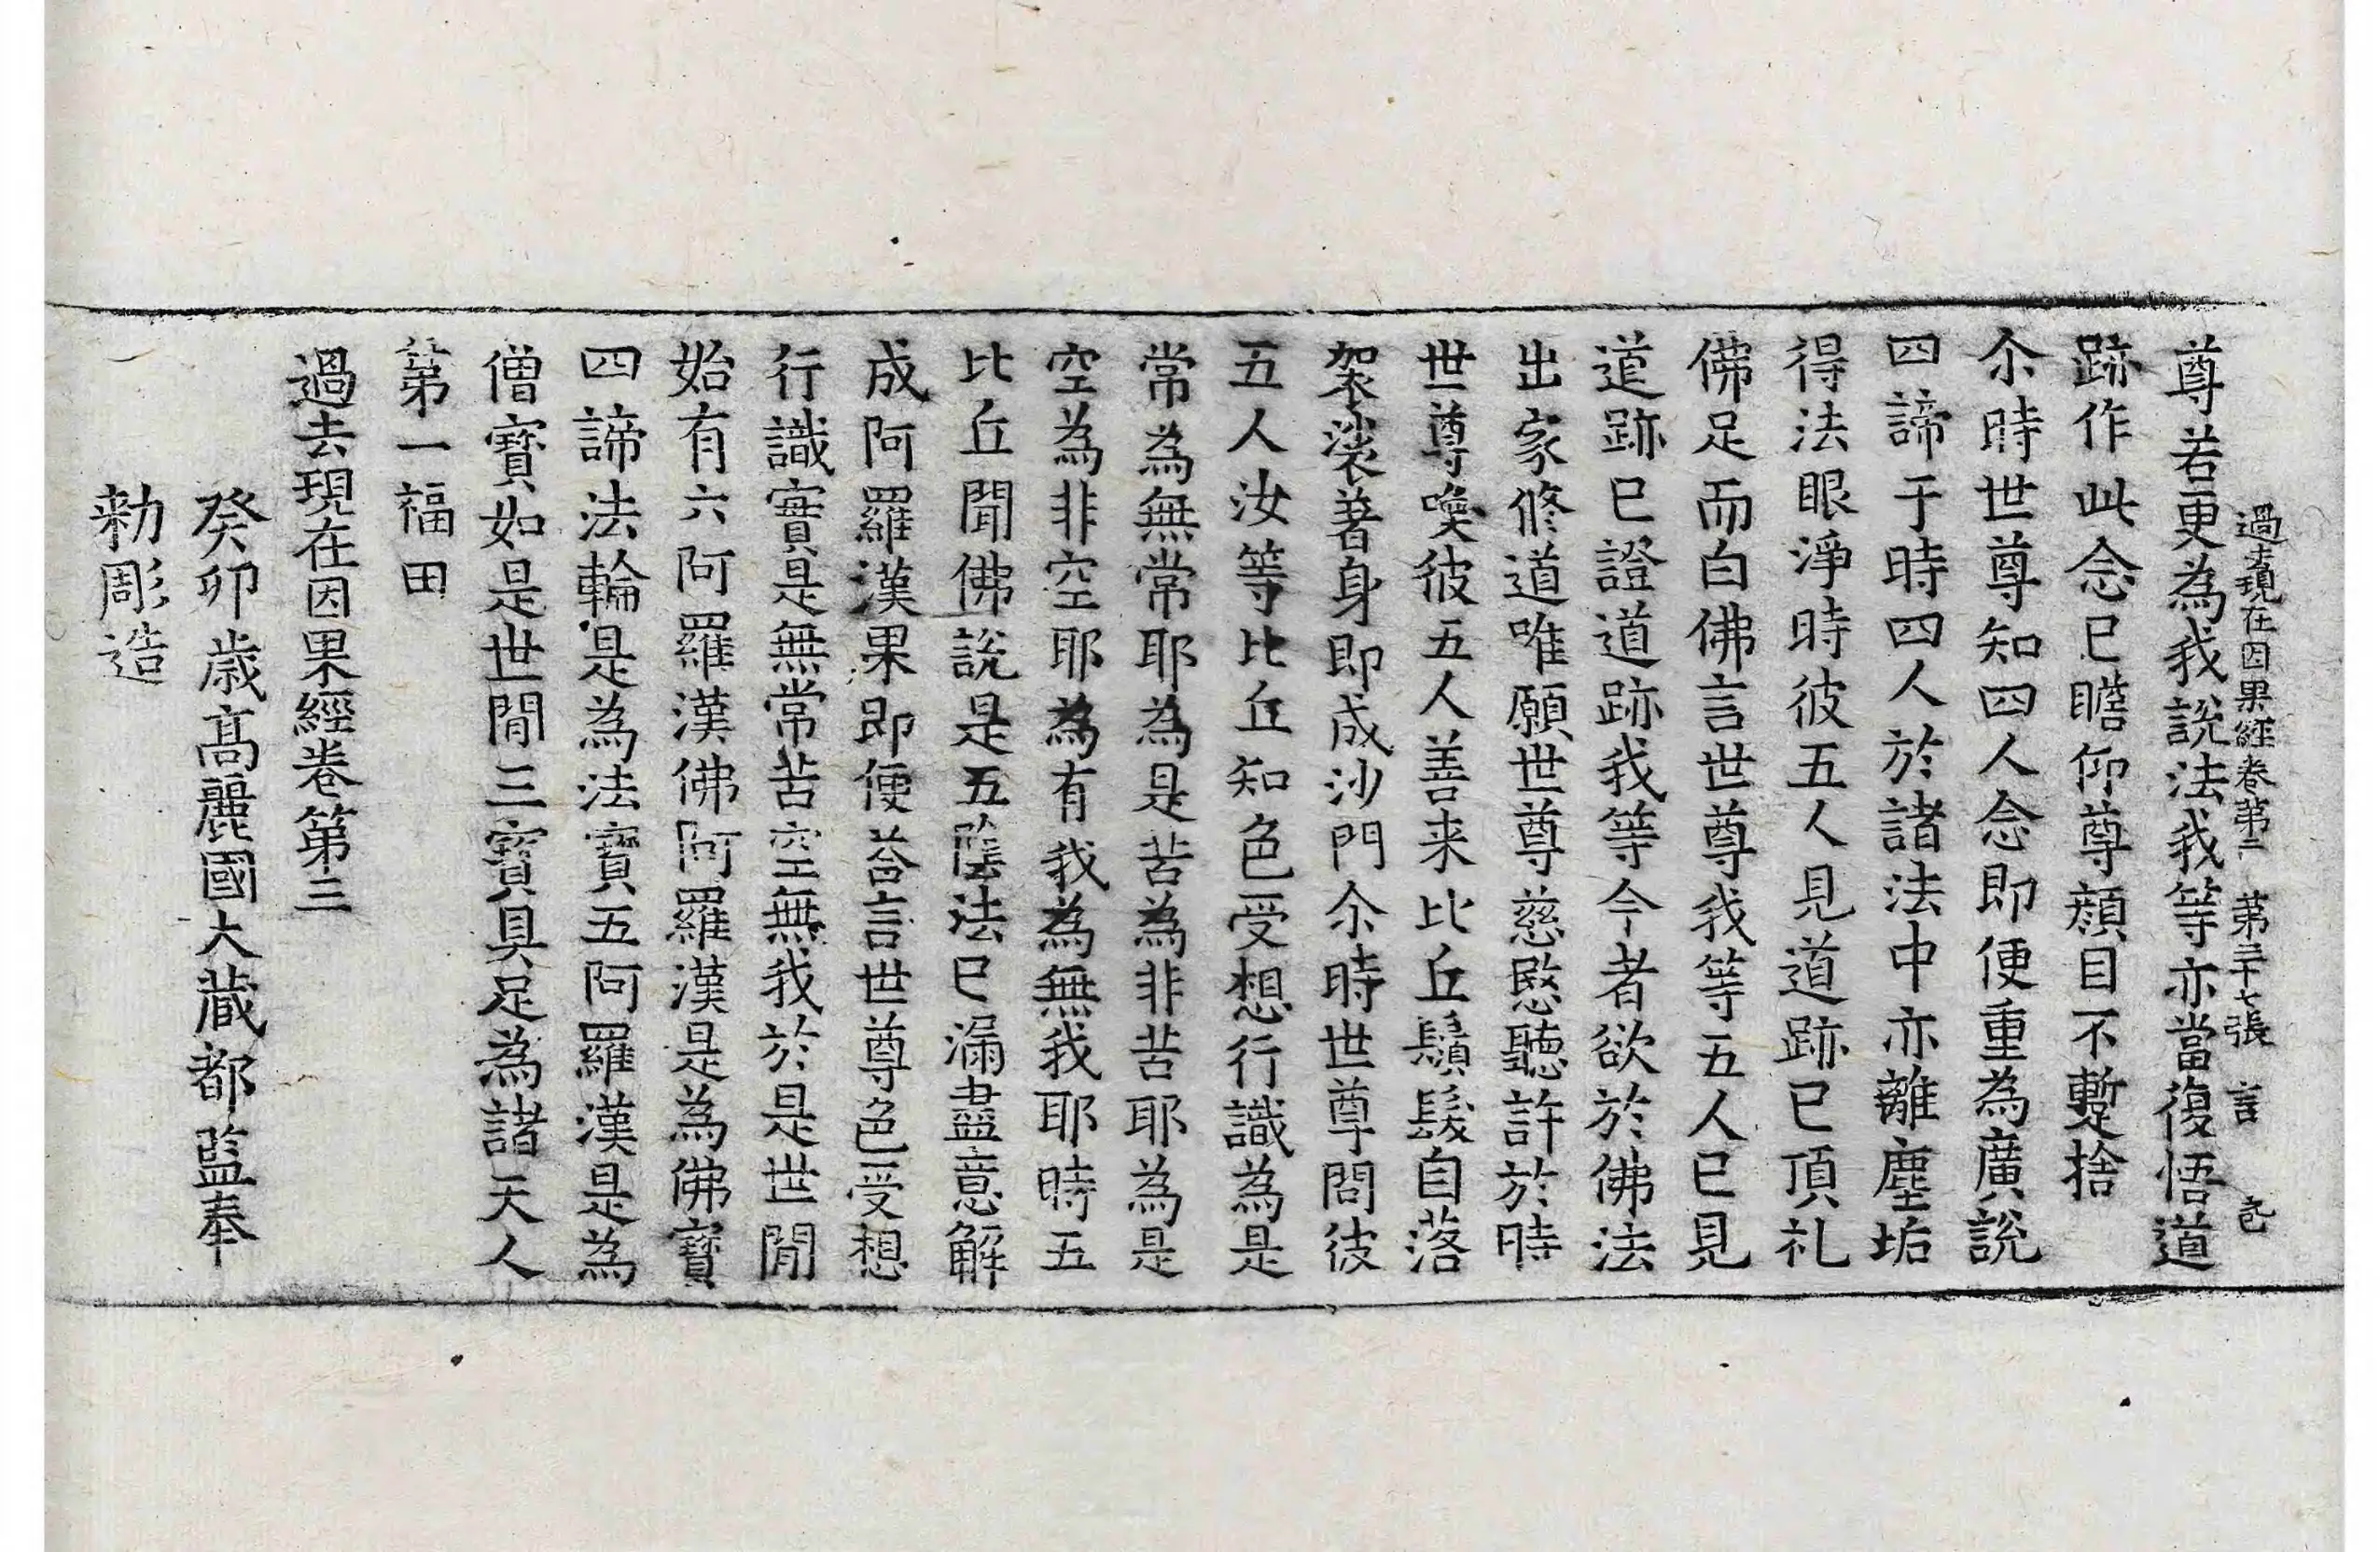 過去現在因果經卷第三 第三十七張 言
尊若更為我說法我等亦當復悟道
跡作此念已瞻仰尊顏目不蹔捨
尒時世尊知四人念即便重為廣說
四諦于時四人於諸法中亦離塵垢
得法眼淨時彼五人見道跡已頂礼
佛足而白佛言世尊我等五人已見
道跡已證道跡我等今者欲於佛法
出家修道唯願世尊慈愍聽許於時
世尊喚彼五人善来比丘鬚髮自落
袈裟著身即成沙門尒時世尊問彼
五人汝等比丘知色受想行識為是
常為無常耶為是苦為非苦耶為是
空為非空耶為有我為無我耶時五
比丘聞佛說是五陰法已漏盡意解
成阿羅漢果即便荅言世尊色受想
行識實是無常苦空無我於是世間
始有六阿羅漢佛阿羅漢是為佛寶
四諦法輪是為法寶五阿羅漢是為
僧寶如是世間三寶具足為諸天人
第一福田
過去現在因果經卷第三
癸卯歲高麗國大藏都監奉
勑彫造